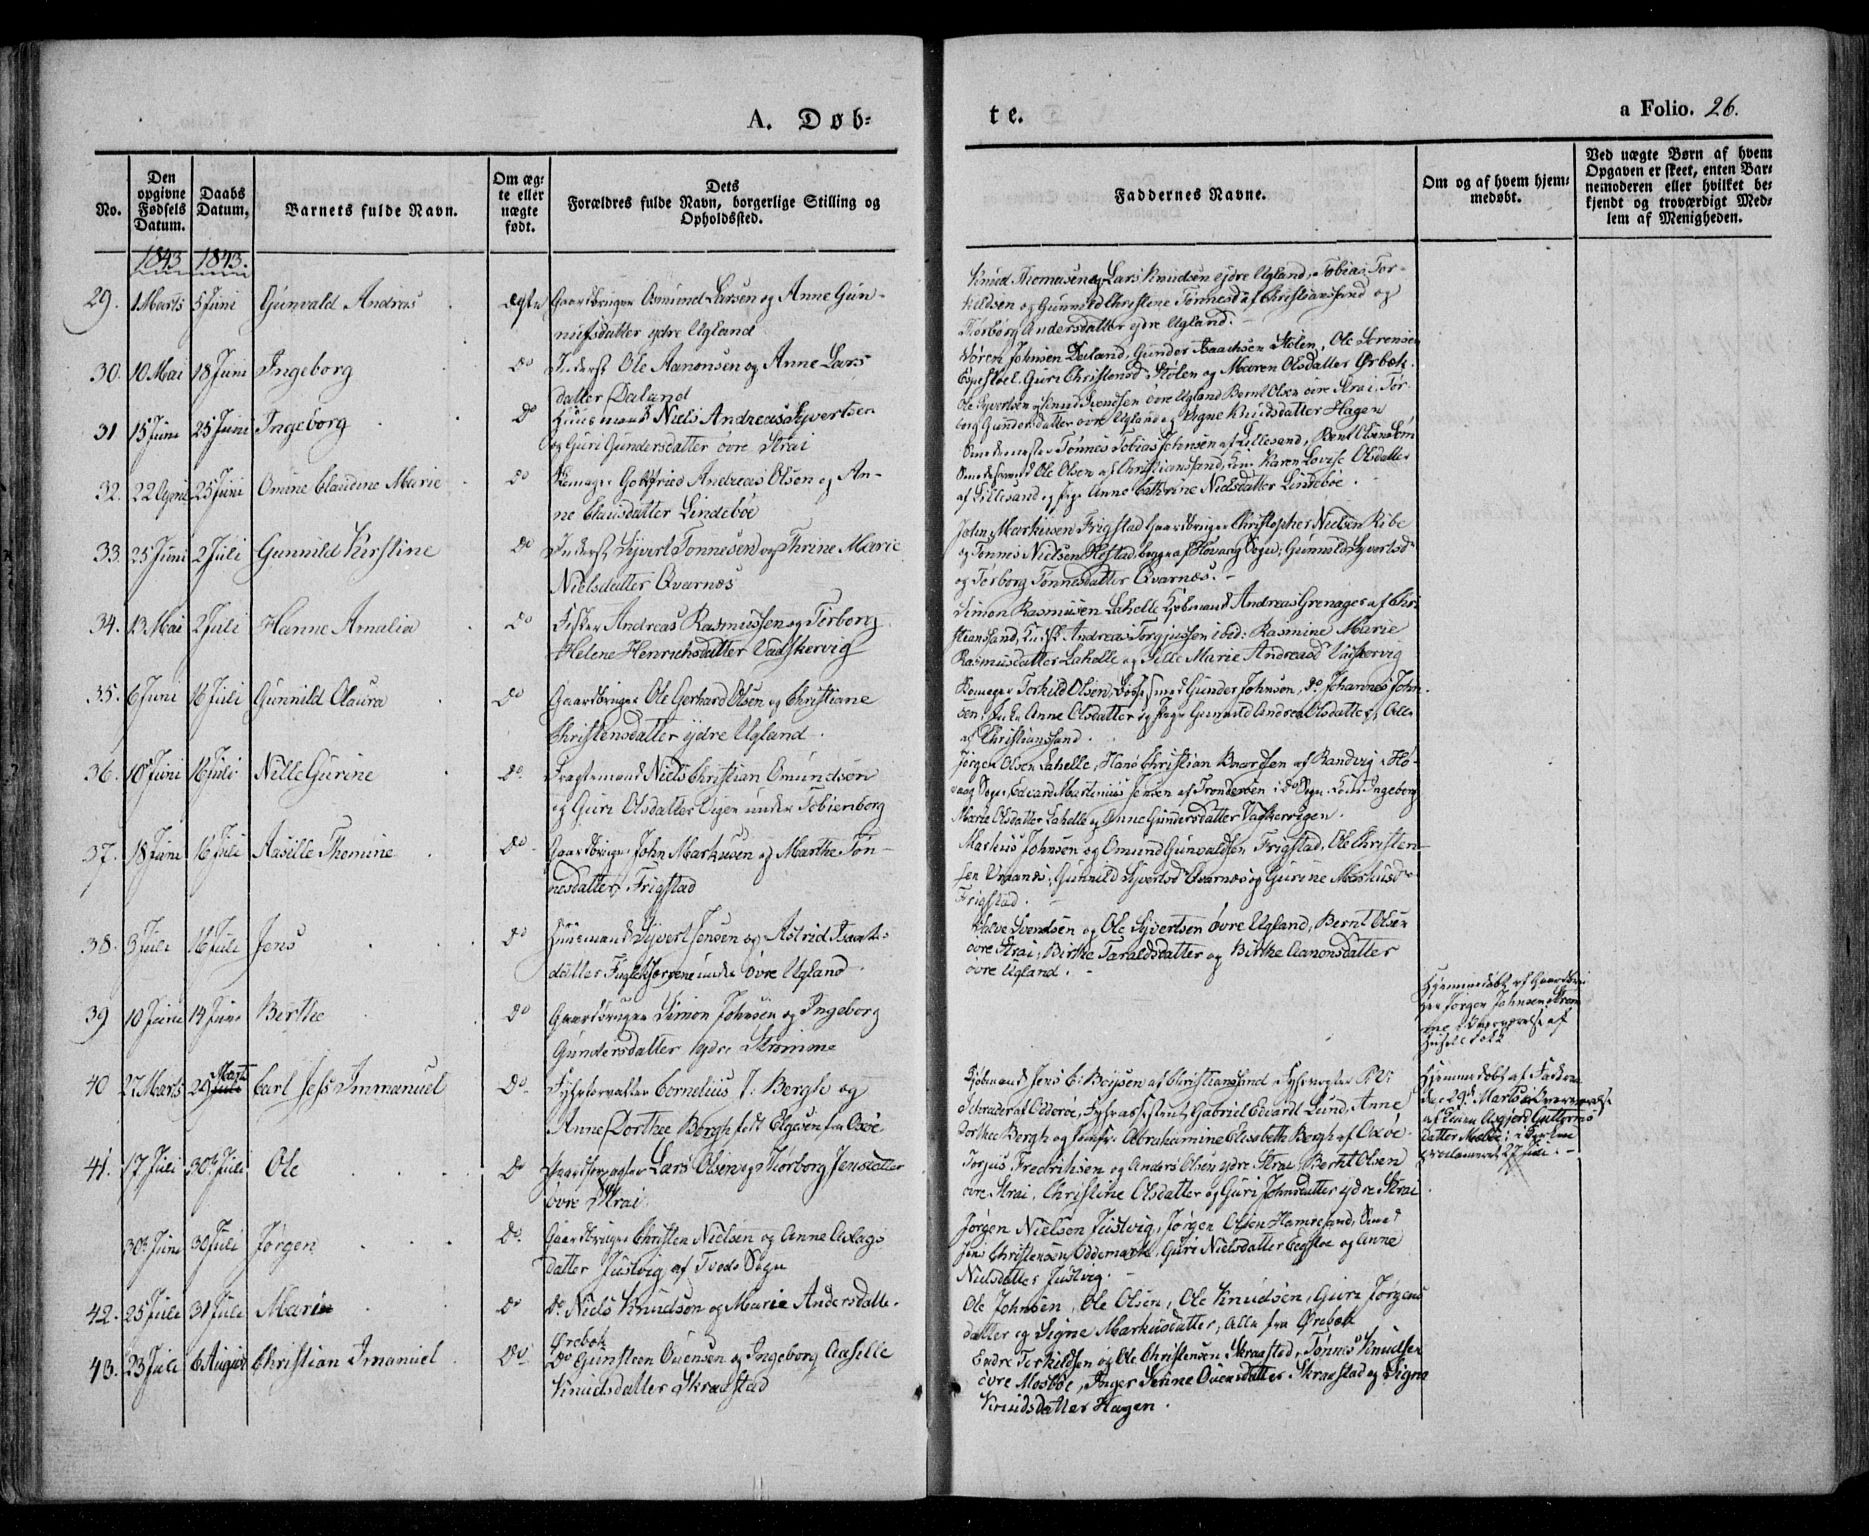 A. Døb-
te.
a Folio. 26.
No.
Den opgivne Fødsels Datum.
Daabs Datum,
Barnets fulde Navn.
Om æg-te eller uægte født.
Dets
Forældres fulde Navn, borgerlige Stilling og
Opholdssted.
Faddernes Navne.
Om og af hvem hjem-
medøbt.
Ved uægte Børn af hvem
Opgaven er skeet, enten Bar-
nemoderen eller hvilket be-
kjendt og troværdigt Med-
lem af Menigheden.
1843 1843.
29. 1 Marts 5 Juni Gunvald Andreas Ægte Gaardbruger Osmund Larsen og Anne Gun-
nufsdatter ydre Ugland
Knud Thomasen og Lars Knudsen ydre Ugland, Tobias Tor-
kildsen og Gunnild Christine Tønnesd af Christianssand og
Thorborg Andersdatter ydre Ugland.
30. 10 Mai 18 Juni Ingeborg Do Inderst Ole Aanonsen og Anne Lars
datter Daland
Søren Johnsen Daland, Gunder Isaachsen Stølen, Ole Sørensen
Espestøl, Guri Christensd Stølen og Maren Olsdatter Ørbæk.
31 15 Juni 25 Juni Ingeborg Do Huusmand Niels Andreas Syvertsen
og Guri Gundersdatter øvre Strai
Ole Syvertsen og Knud Svendsen øvre Ugland Bernt Olsen øvre Strai, Tor-
borg Gundersdatter øvre Ugland og Signe Knudsdatter Hagen
32. 22 April 25 Juni Omine Claudine Marie Do Skomager Gottfried Andreas Olsen og An-
ne Clausdatter Lindebøe
Smedemester Tønnes Tobias Johnsen af Lillesand, Bent Olsen
Smedesvend Ole Olsen af Christianssand, Karen Lovise Olsdatter
af Lillesand og Pige Anne Cathrine Nielsdatter Lindebøe.
33. 25 Juni 2 Juli Gunnild Kirstine Do Inderst Syvert Tønnesen og Thrine Marie
Nielsdatter Qvarnæs
John Markusen Frigstad Gaardbruger Christopher Nielsen Ribe
og Tønnes Nielsen Hestad, begge af Høvaag Sogn; Gunnild Syvertsd
og Torborg Tønnesdatter Qvarnæs.
34. 13 Mai 2 Juli Hanne Amalia Do Fisker Andreas Rasmussen og Torborg
Helene Henrichsdatter Vadskervig
Simon Rasmusen Lahelle Kjøbmand Andreas Grenager af Chri-
stianssand, Andreas Torgjussen ibid: Rasmine Marie
Rasmusdatter Lahelle og Sille Marie Andreasd Vaskervig
35. 6 Juni 16 Juli Gunnild Olaura Do Gaardbruger Ole Gerhard Olsen og Christiane
Christensdatter ydre Ugland.
Skomager Torkild Olsen, Gunder Johnsen, Do. Johannes John-
sen, Enke Anne Olsdatter og Pige Gunnild Andrea Olsdatter, Alle
af Christianssand.
36. 10 Juni 16 Juli Nille Gurine Do. Fragtemand Niels Christian Omundsen
og Guri Olsdatter Vigen under Tobienborg
Jørgen Olsen Lahelle, Hans Christian af Randvig i Hø-
vaag Sogn, Edvard Martinius Jensen af i Do Sogn. Ingeborg
Marie Olsdatter Lahelle og Anne Gundersdatter Vaskervigen.
37. 18 Juni 16 Juli Aasille Thomine Do Gaardbruger John Markusen og Marthe Tøn-
nesdatter Frigstad
Markus Johnsen og Omund Gunvaldsen Frigstad, Ole Christen-
sen Vraanes, Gunnild Syvertsd Qvarnæs og Gurine Markusd
Frigstad.
38. 3 Juli 16 Juli Jens Do Huusmand Syvert Jensen og Astrid Isaaks-
datter under øvre Ugland
Salve Svendsen og Ole Syvertsen Øvre Ugland, Bernt Olsen
øvre Strai, Birthe Taraldsdatter og Birthe Aanonsdatter
øvre Ugland.
39 10 Juni 14 Juni Berthe Do Gaardbruger Simon Johnsen og Ingeborg
Gundersdatter ydre Strømme
Hjemmedøbt af Gaardbru-
ger Jørgen Johnsen Strøm-
me i Overværelse af
Husets Folk
40 27 Marts 29 Marts Carl Jess Immanuel Do. Fyrforvalter Cornelius J: Bergh og
Anne Dorthee Bergh født Elgesen fra Oxøe
Kjøbmand Jens C: Beijsen af Christianssand
Schrader af Odderøe, Fyrassistent Gabriel Edvard Lund, Anne
Dorthee Bergh og Jomfr. Abrahamine Elisabeth Bergh af Oxøe.
Hjemmedøbt af Faderen
den 29de Marts i Overværelse
af Asgjerd Guttorms
datter Mosbøe; i Kirken
27 Juli.
41. 17 Juli 30te Juli Ole Do Gaardforpagter Lars Olsen og Thorborg Jensdatter
øvre Strai
Torjus Fredrichsen og Anders Olsen ydre Strai, Bernt Olsen
øvre Strai, Christine Olsdatter og Guri Johnsdatter ydre Strai
30te Juni 30 Juli Jørgen Do. Gaardbruger Christen Nielsen og Anne Aslags
datter Justvig af Tveds Sogn
Jørgen Nielsen Justvig, Jørgen Olsen Hamresand, Smed
Jens Christensen Oddemark, Guri Nielsdatter Eegstøe og Anne
Nielsdatter Justvig.
42. 25 Juli 31 Juli Marie Do Do. Niels Knudsen og Marie Andersdatter
Ørebæk
Ole Johnsen, Ole Olsen, Ole Knudsen, Guri Jørgens
datter og Signe Markusdatter, Alle fra Ørebæk
43. 23 Juli 6 August Christian Imanuel Do Do Gunsteen Ovensen og Ingeborg Aasille
Knudsdatter Skraastad
Endre Torkildsen og Ole Christensen Skraastad, Tønnes Knudsen
øvre Mosbøe, Inger Serine Ovensdatter Skraastad og Signe
Knudsdatter Hagen.